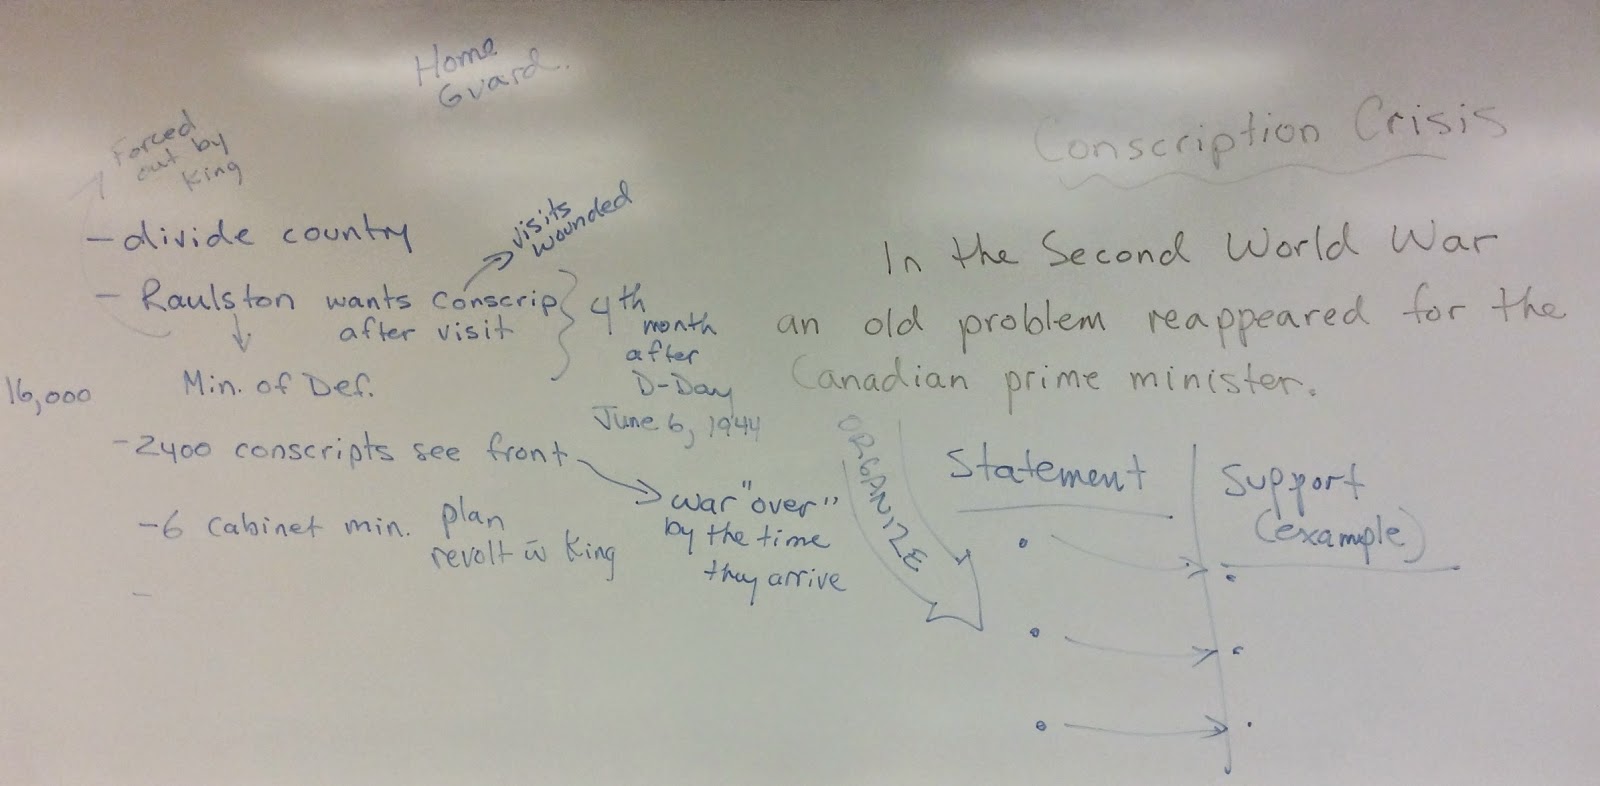 Home
Guard.
Forced
out by
King
- divide country
visits
wounded
- Raulston wants conscrip
after visit
4th
month
after
D-Day
June 6, 1944
Min. of Def.
16,000
- 2400 conscripts see front
war "over"
by the time
they arrive
- 6 cabinet min. plan
revolt w̄ King
-
Conscription Crisis
In the Second World War
an old problem reappeared for the
Canadian prime minister.
ORGANIZE
Statement
Support
(example)